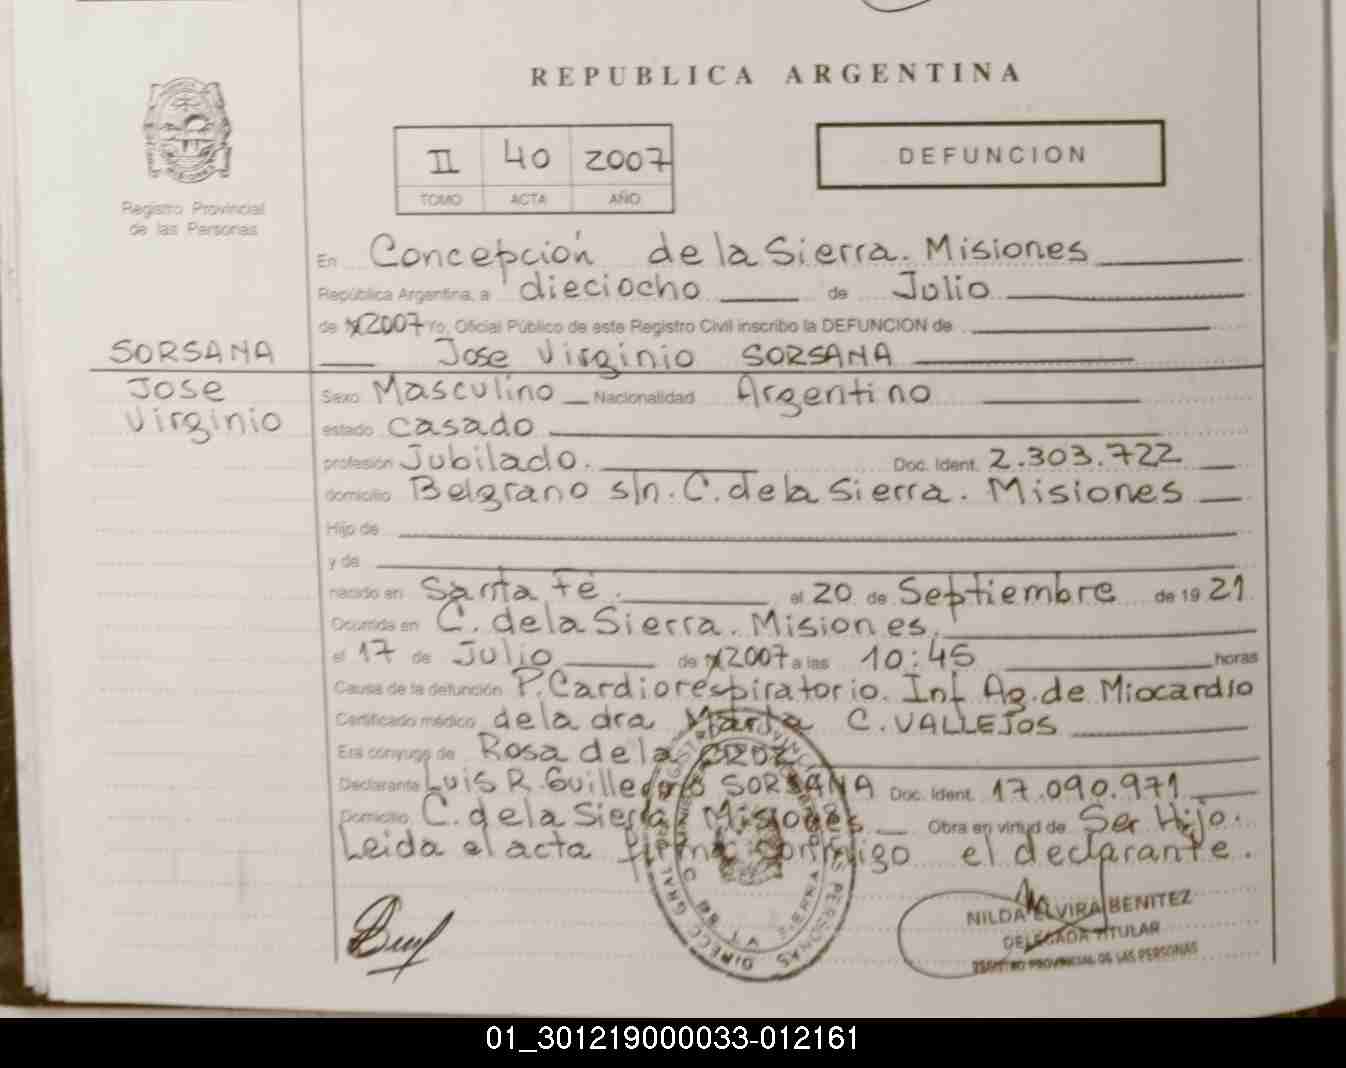 REPUBLICA ARGENTINA
II 40 2007
TOMO ACTA AÑO
DEFUNCION
Registro Provincial
de las Personas
En Concepción de la Sierra. Misiones
República Argentina, a dieciocho de Julio
de 2007 Yo, Oficial Público de este Registro Civil inscribo la DEFUNCION de
Jose Virginio SORSANA
SORSANA
Jose
Virginio
Sexo Masculino Nacionalidad Argentino
estado casado
profesión Jubilado. Doc. Ident. 2.303.722
domicilio Belgrano s/n. C. de la Sierra. Misiones
Hijo de
y de
nacido en Santa Fé. el 20 de Septiembre de 1921
Ocurrida en C. de la Sierra. Misiones.
el 17 de Julio de 2007 a las 10:45 horas
Causa de la defunción P. Cardiorespiratorio. Inf Ag. de Miocardio
Certificado médico de la dra Marta C. VALLEJOS
Era cónyuge de Rosa de la CRUZ
Declarante Luis R. Guillermo SORSANA Doc. Ident. 17.090.971
Domicilio C. de la Sierra Misiones Obra en virtud de Ser Hijo.
Leida el acta firma conmigo el declarante.
NILDA ELVIRA BENITEZ
DELEGADA TITULAR
REGISTRO PROVINCIAL DE LAS PERSONAS
01_301219000033-012161